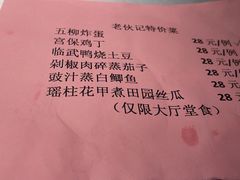 老伙记特价菜
五柳炸蛋 28 元/例
宫保鸡丁 28 元/例
临武鸭烧土豆 28 元/
剁椒肉碎蒸茄子 28 元/
豉汁蒸白鲫鱼 28 元
瑶柱花甲煮田园丝瓜 28
(仅限大厅堂食)